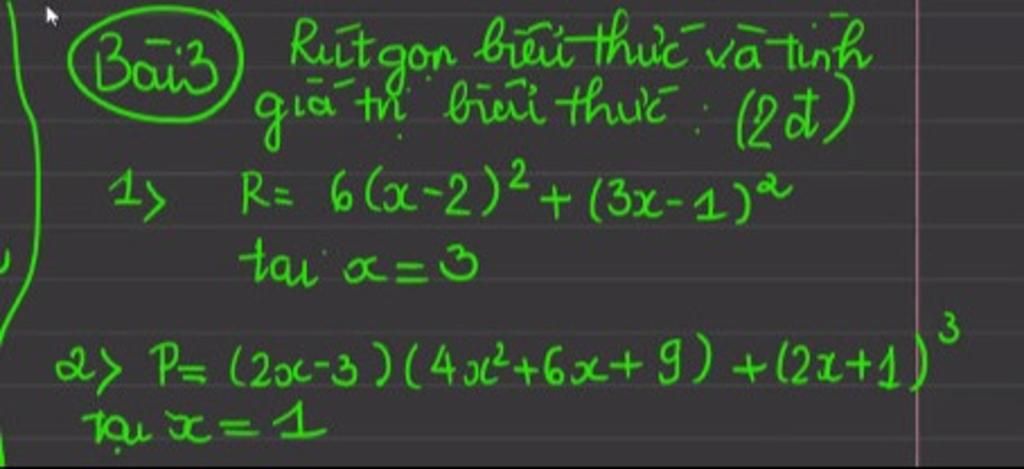 Bài 3 Rút gọn biểu thức và tính
giá trị biểu thức: (2đ)
1> R= 6(x-2)² + (3x-1)²
tại x = 3
2> P= (2x-3)(4x²+6x+9) + (2x+1)³
Tại x = 1